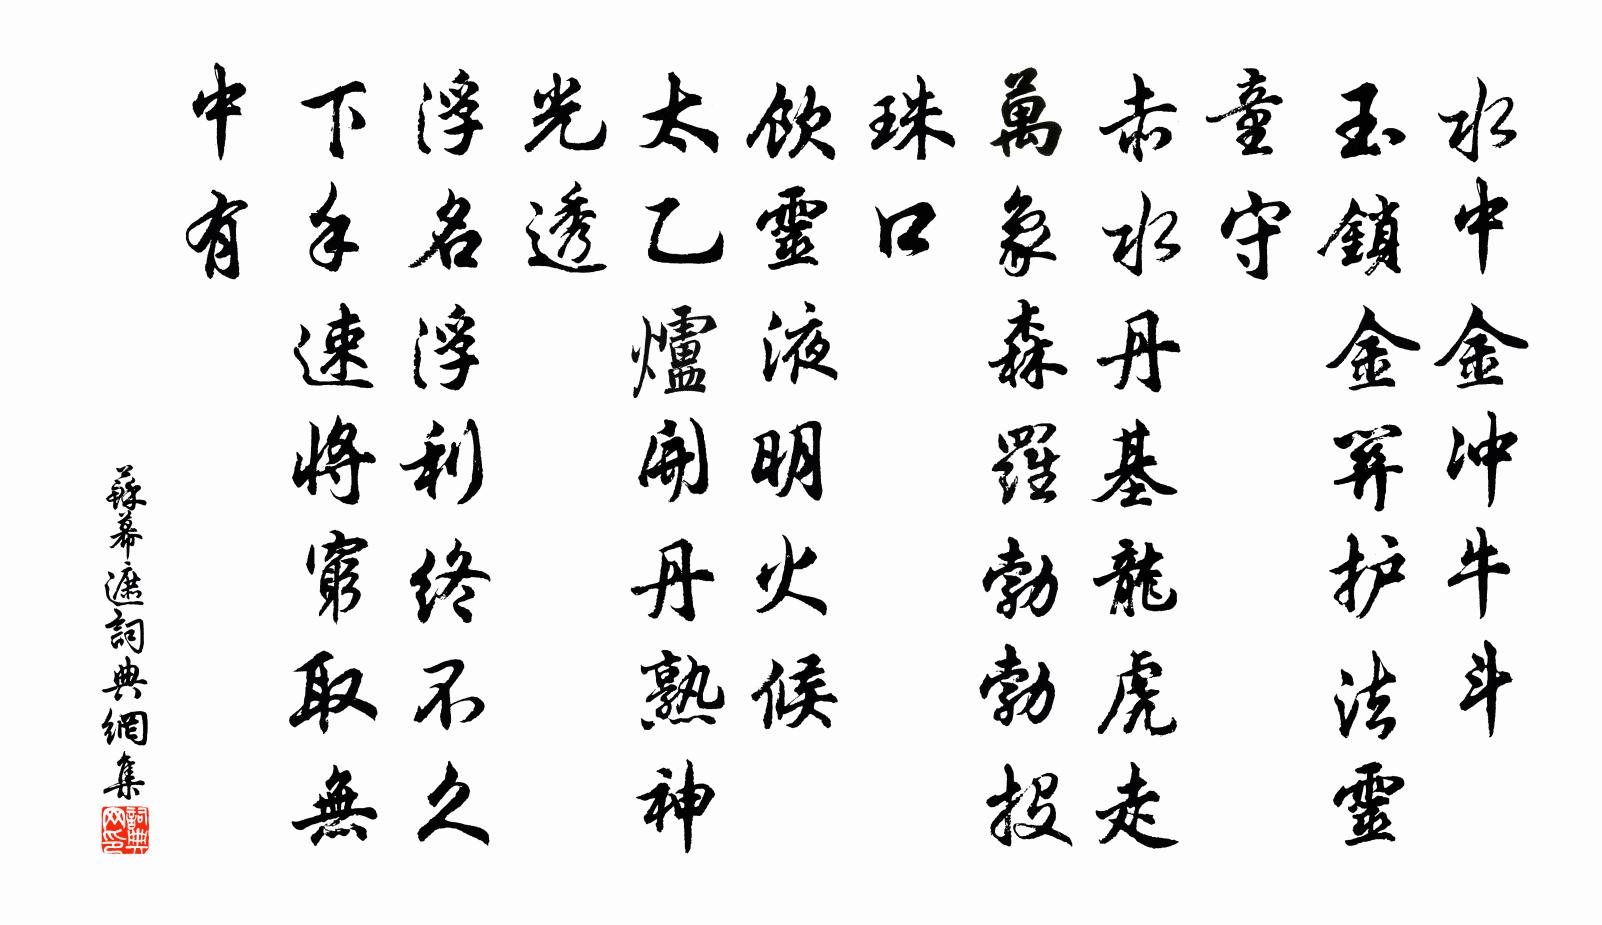 水中金冲牛斗
玉鎖金關护法靈
童守
赤水丹基龍虎走
萬象森羅勃勃投
珠口
飲靈液明火候
太乙爐開丹熟神
光透
浮名浮利終不久
下手速將窮取無
中有
蘇幕遮詞典網集
詞典网印